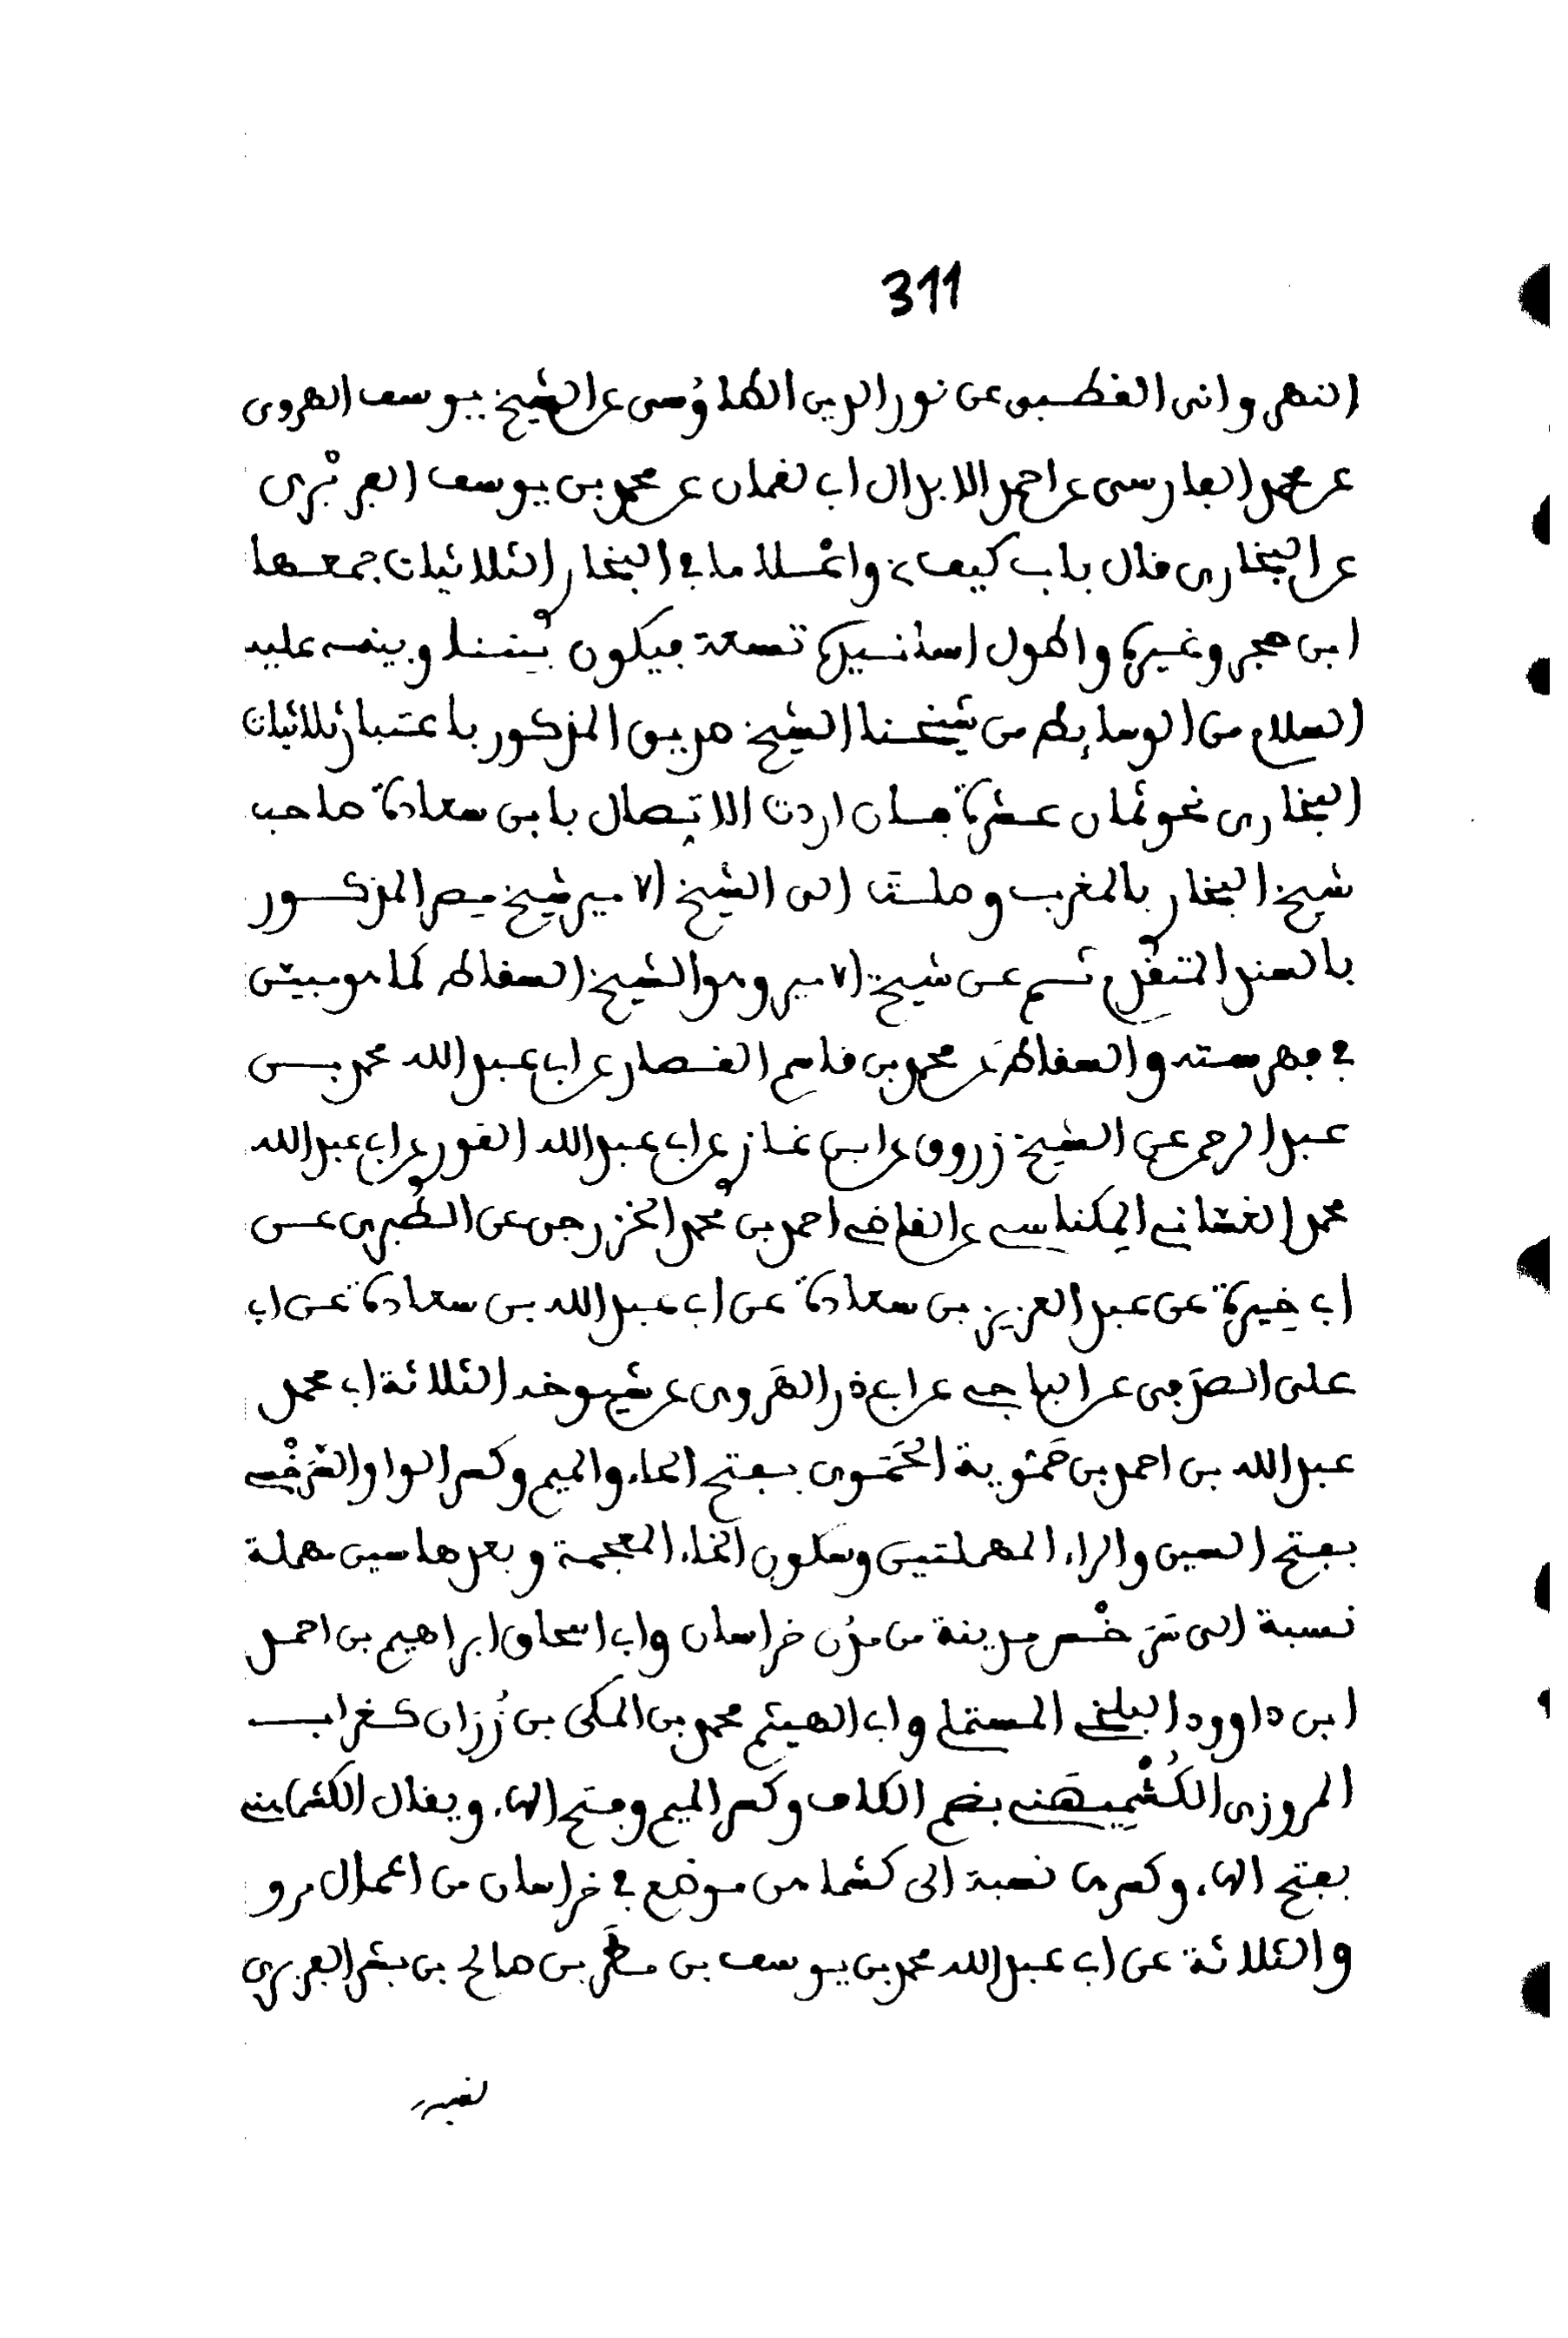 311
النهرواني القطبي عن نور الدين الطاوُسي عن الشيخ يوسف الهروي
عن محمد الفارسي عن احمد الابدال اب لقمان عن محمد بن يوسف الفربْري
عن البخاري قال باب كيف واعْلا ما في البخاري الثلاثيات جمعها
ابن حجر وغيره واطول اسانيده تسعة فيكون بيننا وبينه عليه
السلام من الوسايط من شيخنا الشيخ صديق المذكور باعتبار ثلاثيات
البخاري نحو ثمان عشرة فان اردت الاتصال بابن سعادة صاحب
شيخ البخاري بالمغرب وصلت الى الشيخ الامير شيخ مصر المذكور
بالسند المتقدم ثم عن شيخ الامير وهو الشيخ السقاط كما هو مبين
في فهرسته والسقاط عن محمد بن قاسم القصار عن اب عبد الله محمد بن
عبد الرحمن عن الشيخ زروق عن ابن غازي عن اب عبد الله القوري عن اب عبد الله
محمد الغساني المكناسي عن القاضي احمد بن محمد الخزرجي عن الطبري عن
اب خيرة عن عبد العزيز بن سعادة عن اب عبد الله بن سعادة عن اب
على الصدفي عن الباجي عن اب ذر الهَروي عن شيوخه الثلاثة اب محمد
عبد الله بن احمد بن حَمُّوية الحَمَّوي بفتح الحاء والميم وكسر الواو السَرَخْسي
بفتح السين والراء المهملتين وسكون الخاء المعجمة وبعدها سين مهملة
نسبة الى سَرَخْس مدينة من مدُن خراسان واب اسحاق ابراهيم بن احمد
ابن داوود البلخي المستملي واب الهيثم محمد بن المكي بن زُرَان كغراب
المروزي الكُشْمِيهَني بضم الكاف وكسر الميم وفتح الهاء ويقال الكشماهني
بفتح الهاء وكسرها نسبة الى كشماهن موضع في خراسان من اعمال مرو
والثلاثة عن اب عبد الله محمد بن يوسف بن مطَر بن صالح بن بشر الفربري